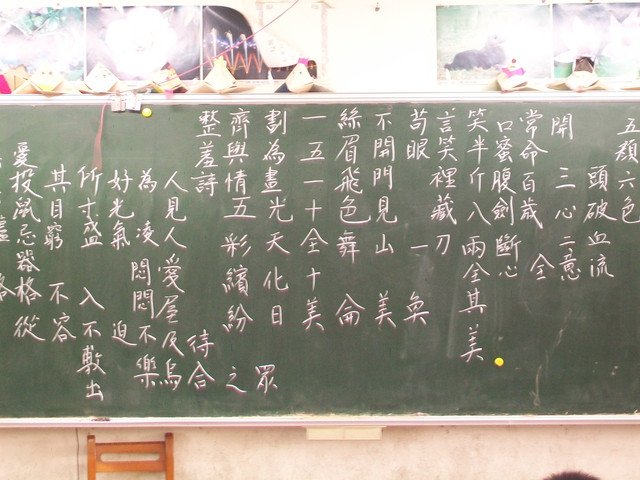 五顏六色
頭破血流
開 三心二意
常命百歲 全
口蜜腹劍 斷心
笑半斤八兩全其美
言笑裡藏刀
苟眼 一 奐
不開門見山 美
絲眉飛色舞 侖
一五一十全十美
劃為畫光天化日
齊與情五彩繽紛 之 眾
整羞詩 待合
人見人愛屋及烏
為 凌 悶悶不樂
好光氣 迫
所寸盛 入不敷出
其目窮 不容
愛投鼠忌器格從